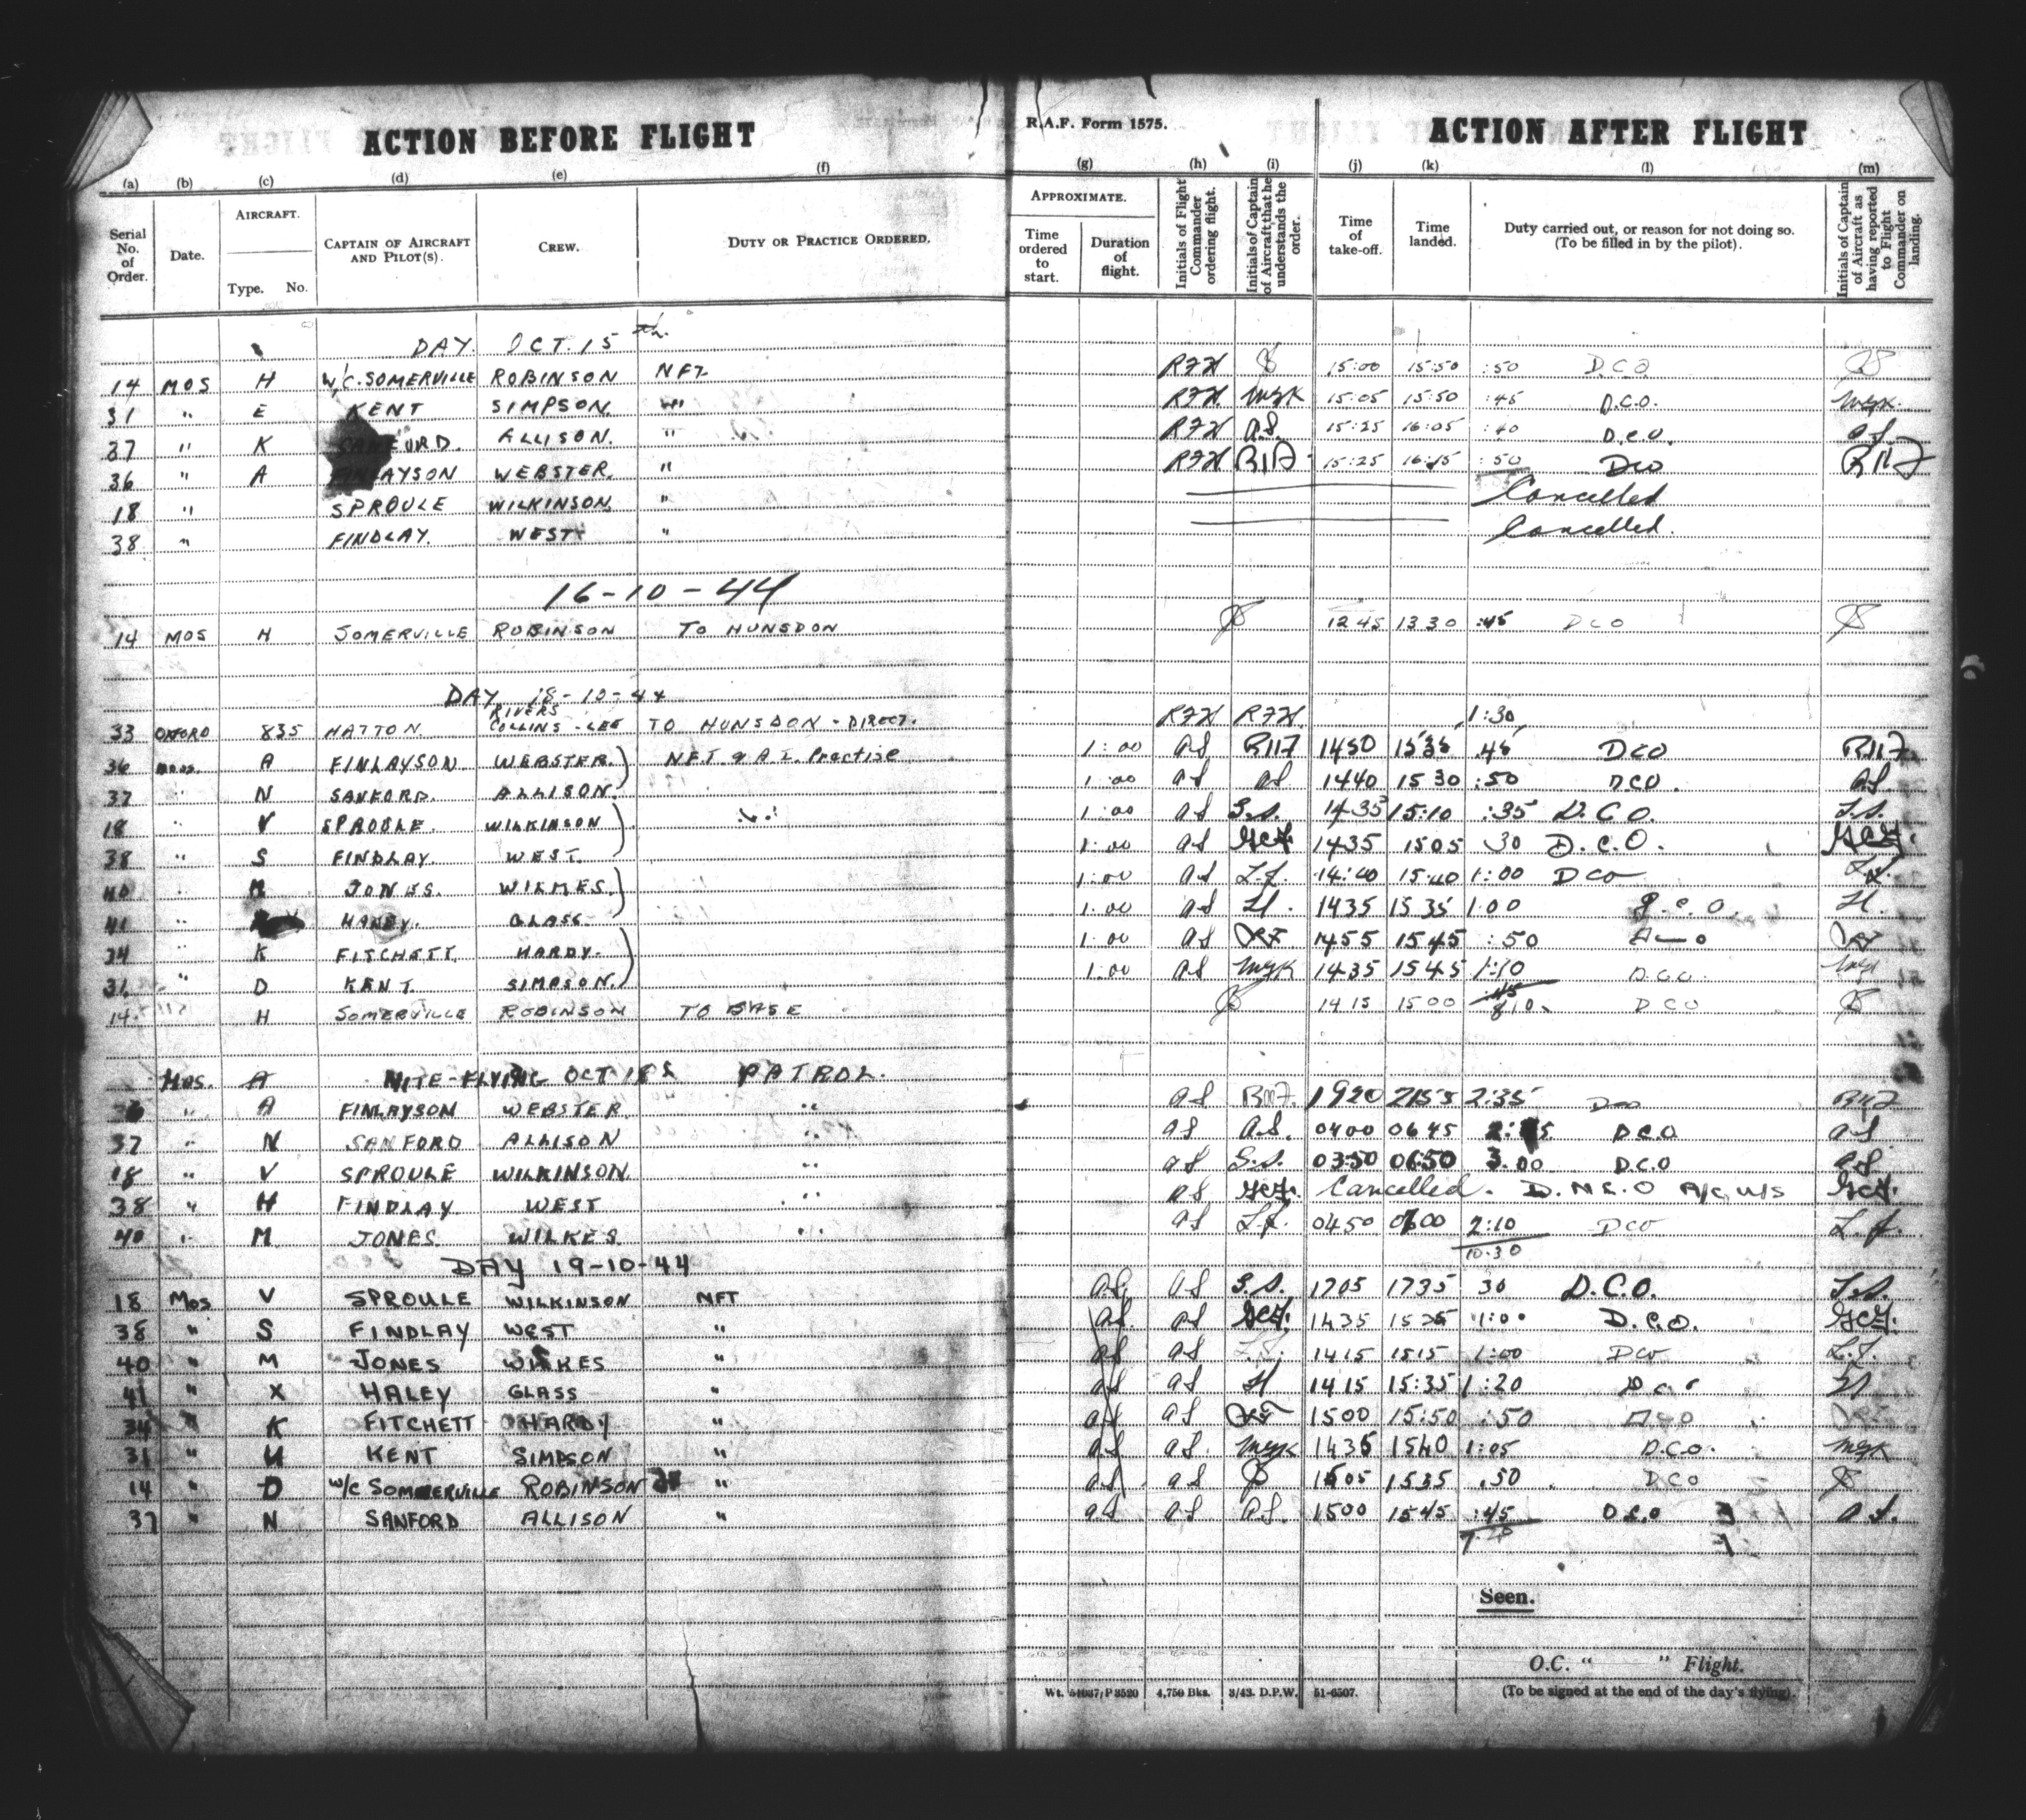 ACTION BEFORE FLIGHT R.A.F. Form 1575. ACTION AFTER FLIGHT
(a) (b) (c) (d) (e) (f) (g) (h) (i) (j) (k) (l) (m)
Serial No. of Order. Date. AIRCRAFT. Type. No. CAPTAIN OF AIRCRAFT AND PILOT(S). CREW. DUTY OR PRACTICE ORDERED. APPROXIMATE. Time ordered to start. Duration of flight. Initials of Flight Commander ordering flight. Initials of Captain of Aircraft, that he understands the order. Time of take-off. Time landed. Duty carried out, or reason for not doing so. (To be filled in by the pilot). Initials of Captain of Aircraft as having reported to Flight Commander on landing.
DAY. OCT. 15 th.
14 MOS H W/C. SOMERVILLE ROBINSON NFT RFH 15:00 15:50 :50 DCO
31 " E KENT SIMPSON. " RFH MYK 15:05 15:50 :45 D.C.O. MYK.
37 " K SANFORD. ALLISON. " RFH A.S. 15:25 16:05 :40 D.C.O. AS
36 " A FINLAYSON WEBSTER. " RFH 15:25 16:15 :50 DCO
18 " SPROULE WILKINSON. " Cancelled
38 " FINDLAY. WEST " Cancelled.
16-10-44
14 MOS H SOMERVILLE ROBINSON TO HUNSDON 1245 1330 :45 DCO
DAY 18-10-44
RIVERS
33 OXFORD 835 HATTON COLLINS - LEE TO HUNSDON - DIRECT. RFH RFH 1:30
36 MOS. A FINLAYSON WEBSTER. NFT & A.I. Practise 1:00 AS 1450 1535 .45 DCO
37 " N SANFORD. ALLISON. 1:00 AS AS 1440 1530 :50 DCO. AS.
18 " V SPROULE. WILKINSON " 1:00 AS S.S. 1435 15:10 :35 D.C.O. S.S.
38 " S FINDLAY. WEST. 1:00 AS GCF 1435 1505 30 D.C.O. GCF.
40 " M JONES. WILKES. 1:00 AS L.J. 14:40 15:40 1:00 DCO L.J.
41 " HANEY. GLASS 1:00 AS H. 1435 1535 1:00 D.C.O. H.
34 " K FITCHETT. HARDY. 1:00 AS 1455 1545 :50
31. " D KENT. SIMPSON. 1:00 AS MYK 1435 1545 1:10 DCO. MYK
14. H SOMERVILLE ROBINSON TO BASE 1415 1500 :45 DCO
8.10.
Mos. A NITE-FLYING OCT 18 PATROL.
36 " A FINLAYSON WEBSTER. " AS 1920 2155 2:35 DCO
37 " N SANFORD ALLISON " AS A.S. 0400 0645 DCO AS
18 " V SPROULE WILKINSON. " AS S.S. 0350 0650 3.00 D.C.O
38 " H FINDLAY WEST " AS GCF. Cancelled. D.N.C.O A/C U/S GCF.
40 " M JONES. WILKES. " AS L.J. 0450 0700 2:10 DCO L.J.
10.30
DAY 19-10-44
18 Mos V SPROULE WILKINSON NFT AS AS S.S. 1705 1735 30 D.C.O. S.S.
38 " S FINDLAY WEST " AS AS GCF. 1435 1535 1:00 D.C.O. GCF.
40 " M JONES WILKES " AS AS 1415 1515 1:00 DCO L.J.
41 " X HALEY GLASS " AS AS H 1415 15:35 1:20 DCO H
34 " K FITCHETT HARDY " AS AS 1500 15:50 :50 DCO
31 " U KENT SIMPSON " AS AS. MYK 1435 1540 1:05 D.C.O. MYK
14 " D W/C SOMMERVILLE ROBINSON " AS AS 1505 1535 .50 DCO
37 " N SANFORD ALLISON " AS AS A.S. 1500 1545 :45 D.C.O 3 A.S.
Seen.
O.C. " " Flight.
4,750 Bks. 3/43. D.P.W. 51-6507. (To be signed at the end of the day's flying).